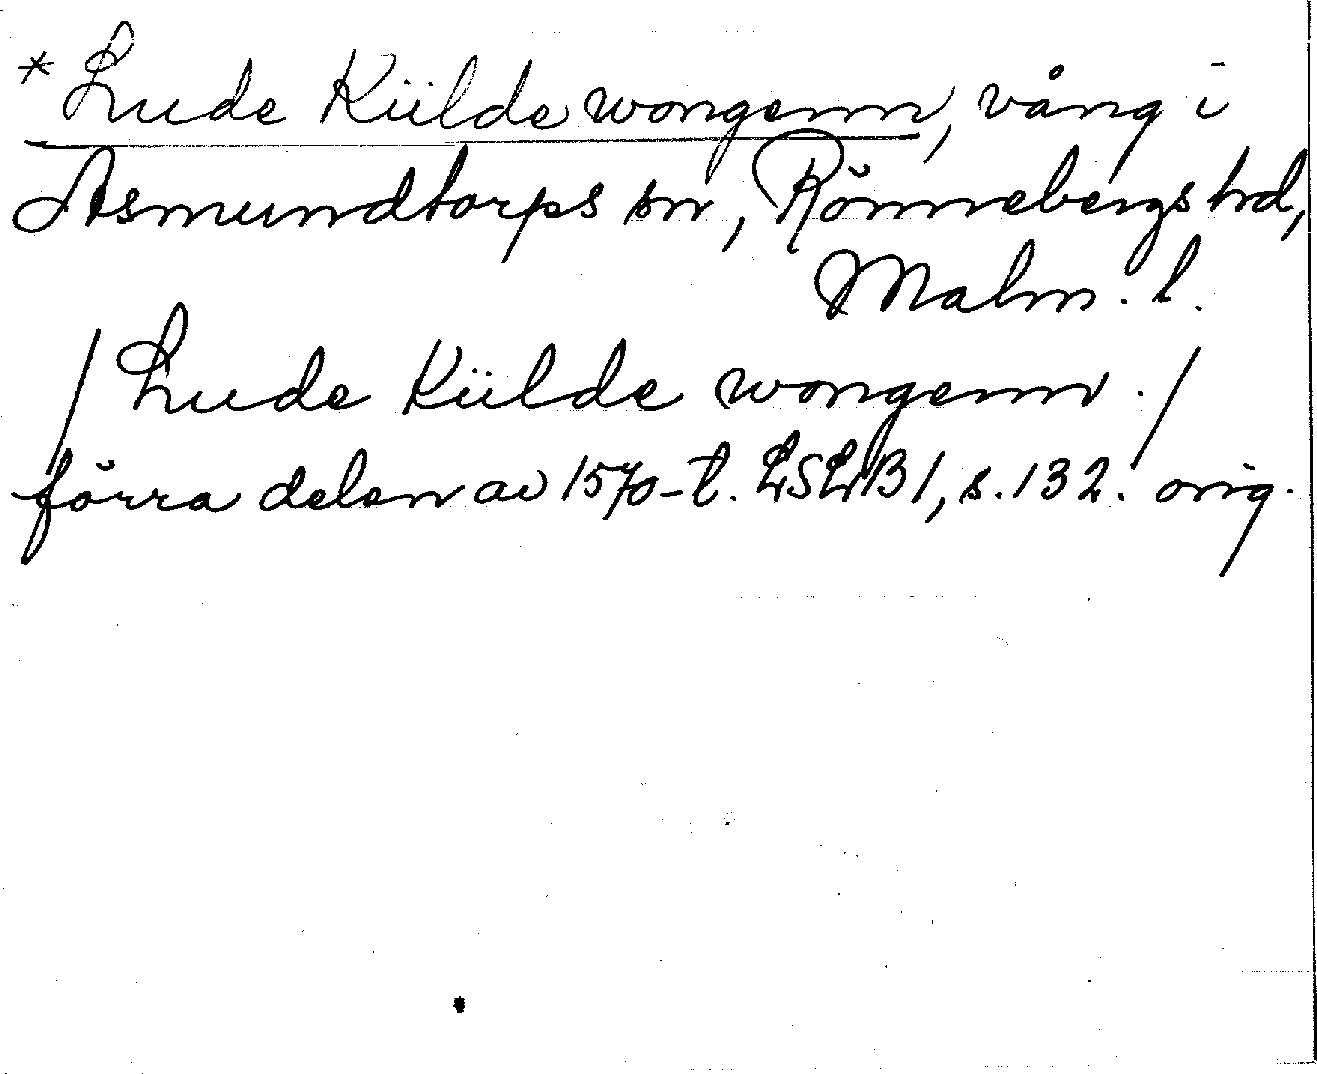 *Lude Kiilde wongenn, vång i
Asmundtorps sn, Rönnebergs hd,
Malm. l.
/Lude Kiilde wongenn./
förra delen av 1570-t. LSLB1, s. 132. orig.